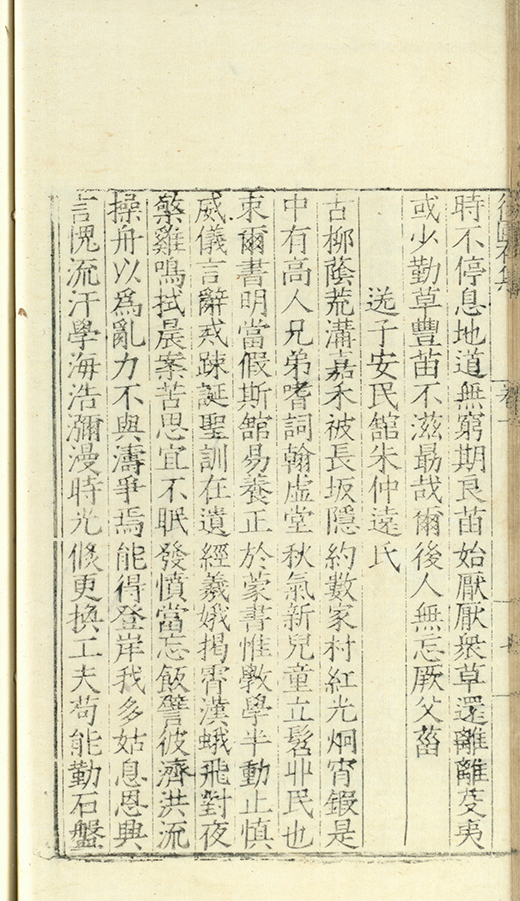 時不停息地道無窮期良苗始厭厭衆草還離離芟夷
或少勤草豐苗不滋勗哉爾後人無忘厥父菑
送子安民舘朱仲遠氏
古柳蔭荒溝嘉禾被長坂隱約數家村紅光炯宵鍜是
中有高人兄弟嗜詞翰虛堂秋氣新兒童立髫丱民也
束爾書明當假斯舘易養正於蒙書惟斆學半動止慎
威儀言辭戒踈誕聖訓在遺經羲娥揭霄漢蛾飛對夜
檠雞鳴拭晨案苦思宜不眠發憤當忘飯譬彼濟洪流
操舟以爲亂力不與濤爭焉能得登岸我多姑息恩興
言愧流汗學海浩瀰漫時光倐更換工夫苟能勤石盤